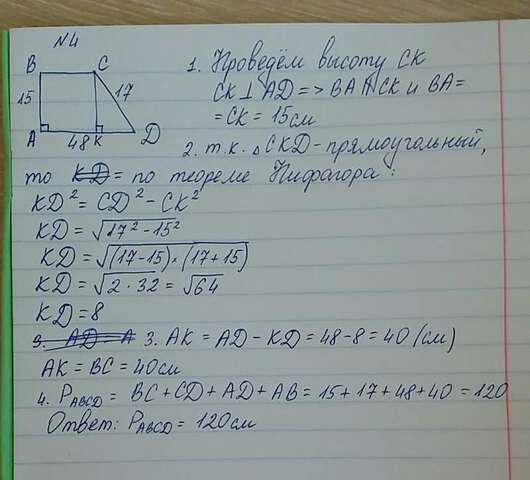 N4
B C
15 17
A 48 K D
1. Проведём высоту CK
CK ⊥ AD => BA ∥ CK и BA=
= CK = 15см
2. т.к. △CKD - прямоугольный,
то KD = по теореме Пифагора:
KD² = CD² - CK²
KD = √17² - 15²
KD = √(17-15)·(17+15)
KD = √2·32 = √64
KD = 8
3. AD = A 3. AK = AD - KD = 48 - 8 = 40 (см)
AK = BC = 40см
4. PABCD = BC + CD + AD + AB = 15 + 17 + 48 + 40 = 120
Ответ: PABCD = 120см